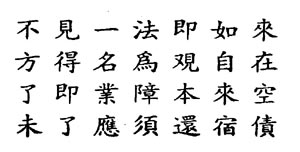 不見一法即如來
方得名爲覌自在
了即業障本來空
未了應須還宿債